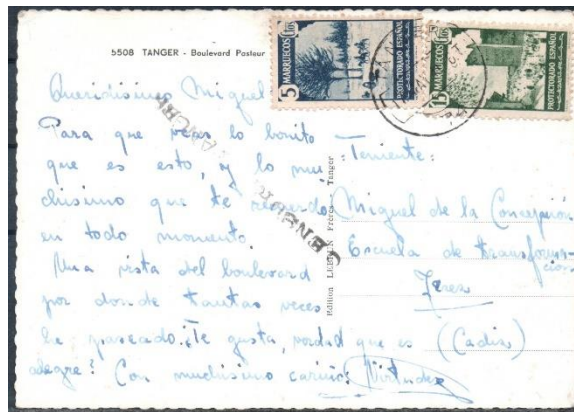 5508 TANGER - Boulevard Pasteur
5 MARRUECOS CTS
PROTECTORADO ESPAÑOL
15 MARRUECOS CTS
PROTECTORADO ESPAÑOL
Queridísimo Miguel
Para que veas lo bonito
que es esto, y lo mu
chisimo que te recuerdo
en todo momento.
Una vista del boulevard
por donde tantas veces
he paseado. ¿Te gusta, verdad que es
alegre? Con muchisimo cariño: Virtudes
CENSURA
Edition LEBRUN Frères - Tanger
:Teniente:
Miguel de la Concepción
Escuela de transforma-
ción
Jerez
(Cadiz)